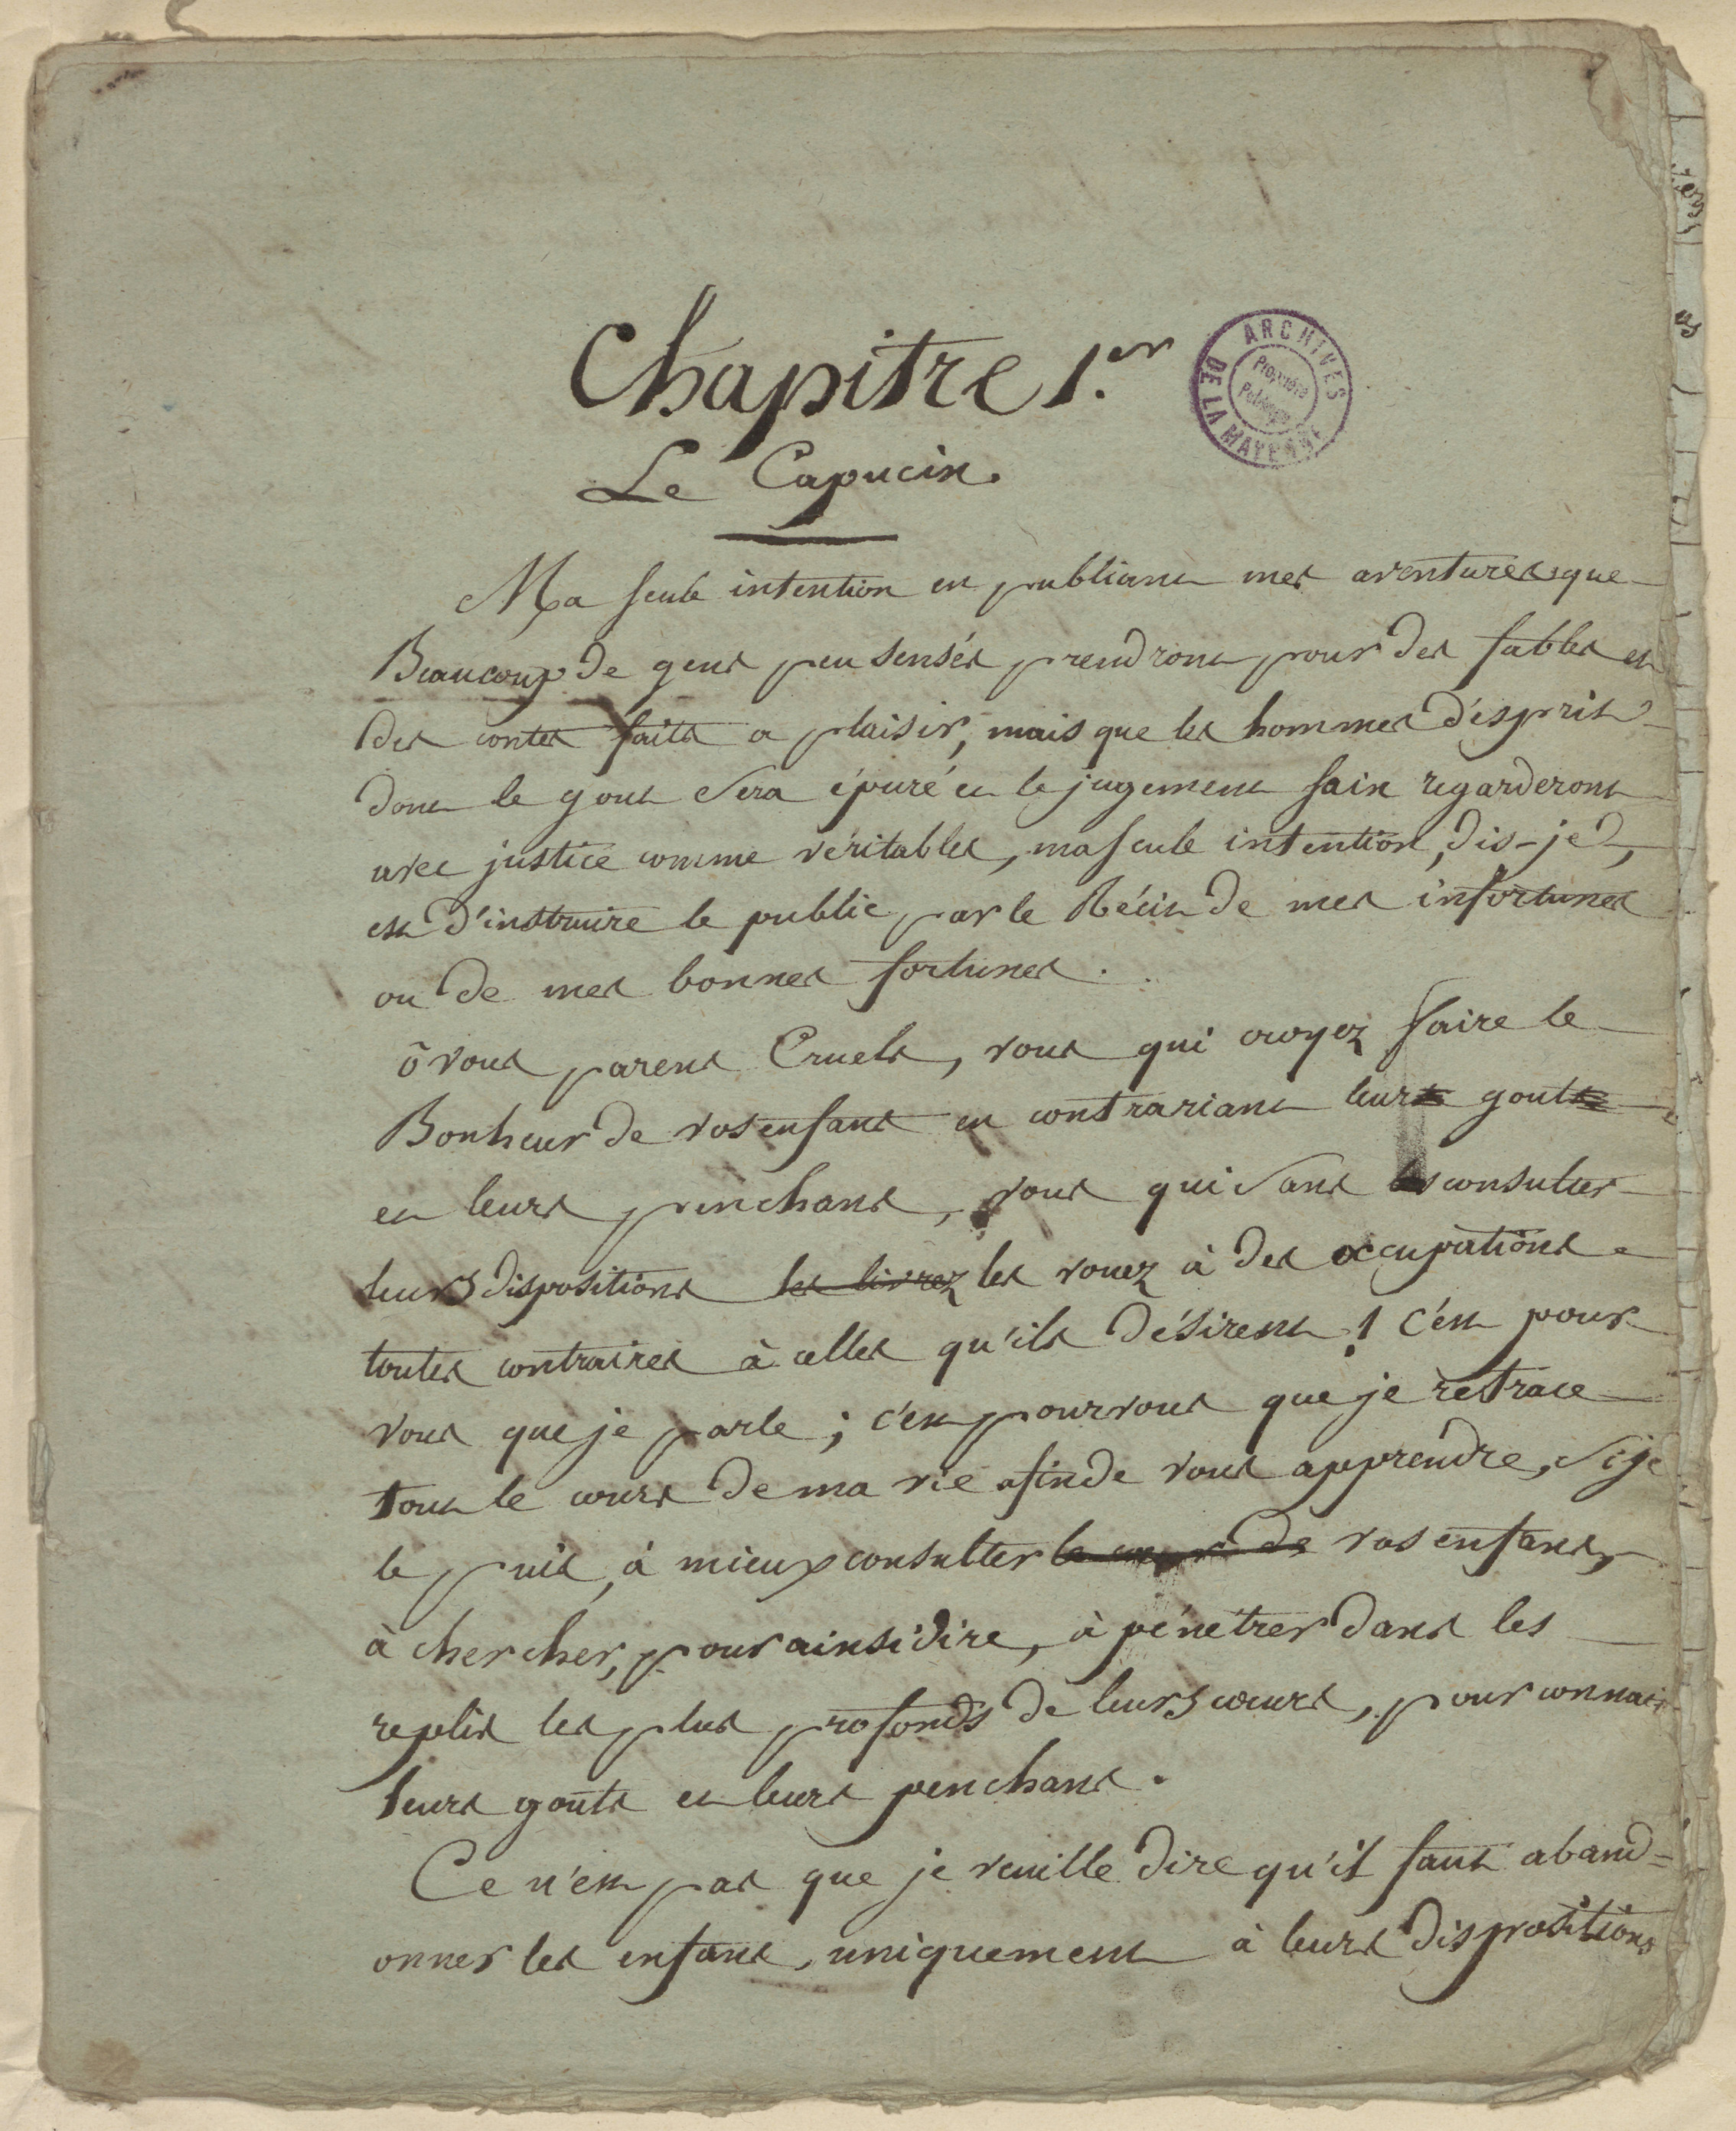 Chapitre 1.er
ARCHIVES DE LA MAYENNE
Propriété
Publique
Le Capucin.
Ma seule intention en publiant mes aventures, que
Beaucoup de gens peu sensés prendront pour des fables et
des contes faits a plaisir, mais que les hommes d'esprit
dont le gout sera épuré et le jugement sain regarderont
avec justice comme véritables, ma seule intention, dis-je,
est d'instruire le public par le Récit de mes infortunes
ou de mes bonnes fortunes.
ô vous parens Cruels, vous qui croyez faire le
Bonheur de vos enfans en contrariant leurs gouts
et leurs penchans, vous qui sans consulter
leurs dispositions les livrez les vouez à des occupations
toutes contraires à celles qu'ils désirent! c'est pour
vous que je parle; c'est pour vous que je retrace
tout le cours de ma vie afin de vous apprendre, si je
le puis, à mieux consulter le cœur de vos enfans,
à chercher, pour ainsi dire, à pénétrer dans les
replis les plus profonds de leurs cœurs, pour connaitr
leurs gouts et leurs penchans.
Ce n'est pas que je veuille dire qu'il faut aband=
onner les enfans, uniquement à leurs dispositions